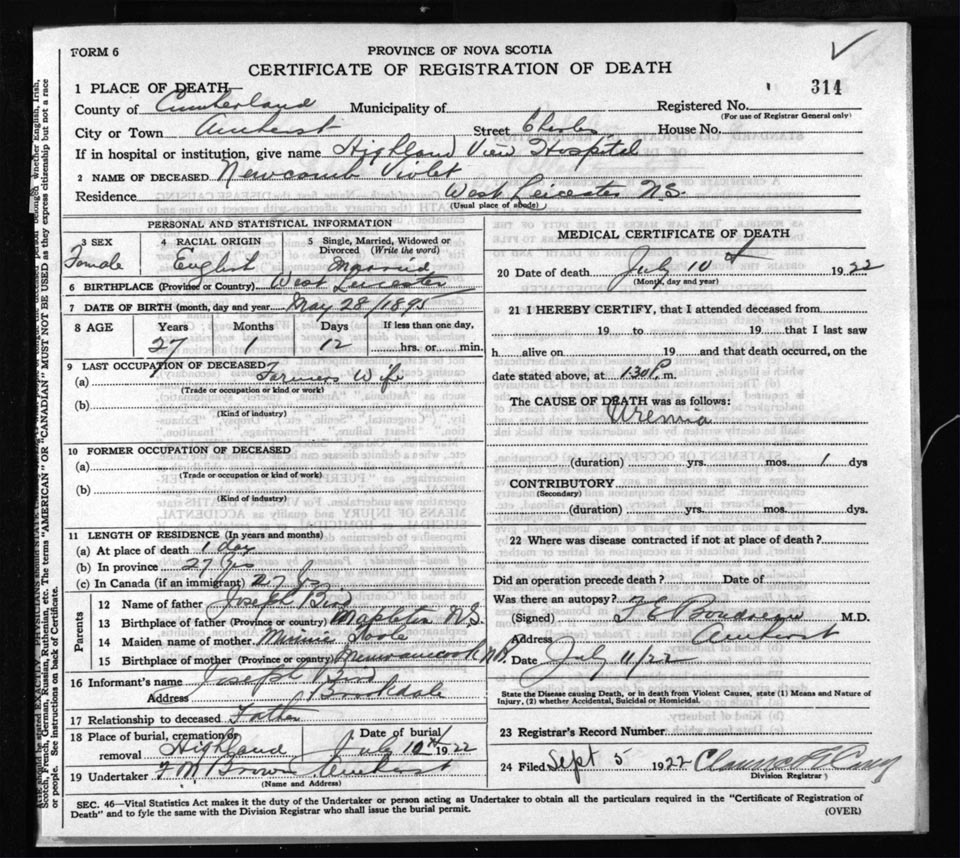 FORM 6
PROVINCE OF NOVA SCOTIA
CERTIFICATE OF REGISTRATION OF DEATH
314
1 PLACE OF DEATH—
County of Cumberland Municipality of Registered No.
(For use of Registrar General only)
City or Town Amherst Street Charles House No.
If in hospital or institution, give name Highland View Hospital
2 NAME OF DECEASED Newcomb Violet
Residence West Leicester N.S.
(Usual place of abode)
PERSONAL AND STATISTICAL INFORMATION
3 SEX 4 RACIAL ORIGIN 5 Single, Married, Widowed or Divorced (Write the word)
Female English Married
6 BIRTHPLACE (Province or Country) West Leicester
7 DATE OF BIRTH (month, day and year) May 28/1895
8 AGE Years Months Days If less than one day,
27 1 12 hrs. or min.
9 LAST OCCUPATION OF DECEASED
(a) Farmers Wife
(Trade or occupation or kind of work)
(b)
(Kind of industry)
10 FORMER OCCUPATION OF DECEASED
(a)
(Trade or occupation or kind of work)
(b)
(Kind of industry)
11 LENGTH OF RESIDENCE (In years and months)
(a) At place of death 1 day
(b) In province 27 yrs
(c) In Canada (if an immigrant) 27 yrs
Parents
12 Name of father Joseph
13 Birthplace of father (Province or country) Mapleton N.S.
14 Maiden name of mother
15 Birthplace of mother (Province or country) Memramcook N.B.
16 Informant's name Joseph
Address Brookdale
17 Relationship to deceased Father
18 Place of burial, cremation or removal Highland Date of burial July 12th 1922
19 Undertaker F M Brown Amherst
(Name and Address)
MEDICAL CERTIFICATE OF DEATH
20 Date of death July 10 1922
(Month, day and year)
21 I HEREBY CERTIFY, that I attended deceased from
19 to 19 that I last saw
h alive on 19 and that death occurred, on the
date stated above, at 1.30 P. m.
The CAUSE OF DEATH was as follows:
Uremia
(duration) yrs. mos. 1 dys
CONTRIBUTORY
(Secondary)
(duration) yrs. mos. dys.
22 Where was disease contracted if not at place of death?
Did an operation precede death? Date of
Was there an autopsy?
(Signed) F E Boudreau M.D.
Address Amherst
Date July 11/22
State the Disease causing Death, or in death from Violent Causes, state (1) Means and Nature of
Injury, (2) whether Accidental, Suicidal or Homicidal.
23 Registrar's Record Number
24 Filed Sept 5 1922
Division Registrar
SEC. 46—Vital Statistics Act makes it the duty of the Undertaker or person acting as Undertaker to obtain all the particulars required in the "Certificate of Registration of
Death" and to fyle the same with the Division Registrar who shall issue the burial permit.
(OVER)